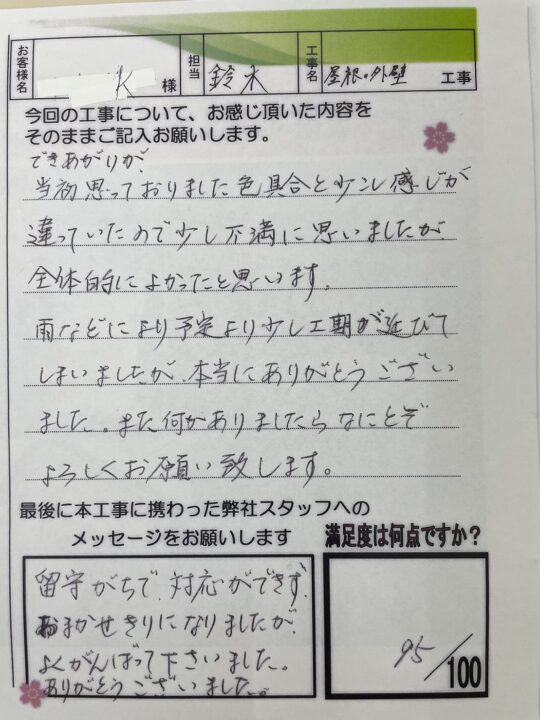 お客様名 K 様 担当 鈴木 工事名 屋根・外壁 工事
今回の工事について、お感じ頂いた内容を
そのままご記入お願いします。
できあがりが、
当初思っておりました色具合と少し感じが
違っていたので少し不満に思いましたが、
全体的によかったと思います。
雨などにより予定より少し工期が延びて
しまいましたが、本当にありがとうござい
ました。また何かありましたらなにとぞ
よろしくお願い致します。
最後に本工事に携わった弊社スタッフへの
メッセージをお願いします
留守がちで、対応ができず、
おまかせきりになりましたが、
よくがんばって下さいました。
ありがとうございました。
満足度は何点ですか？
95/100